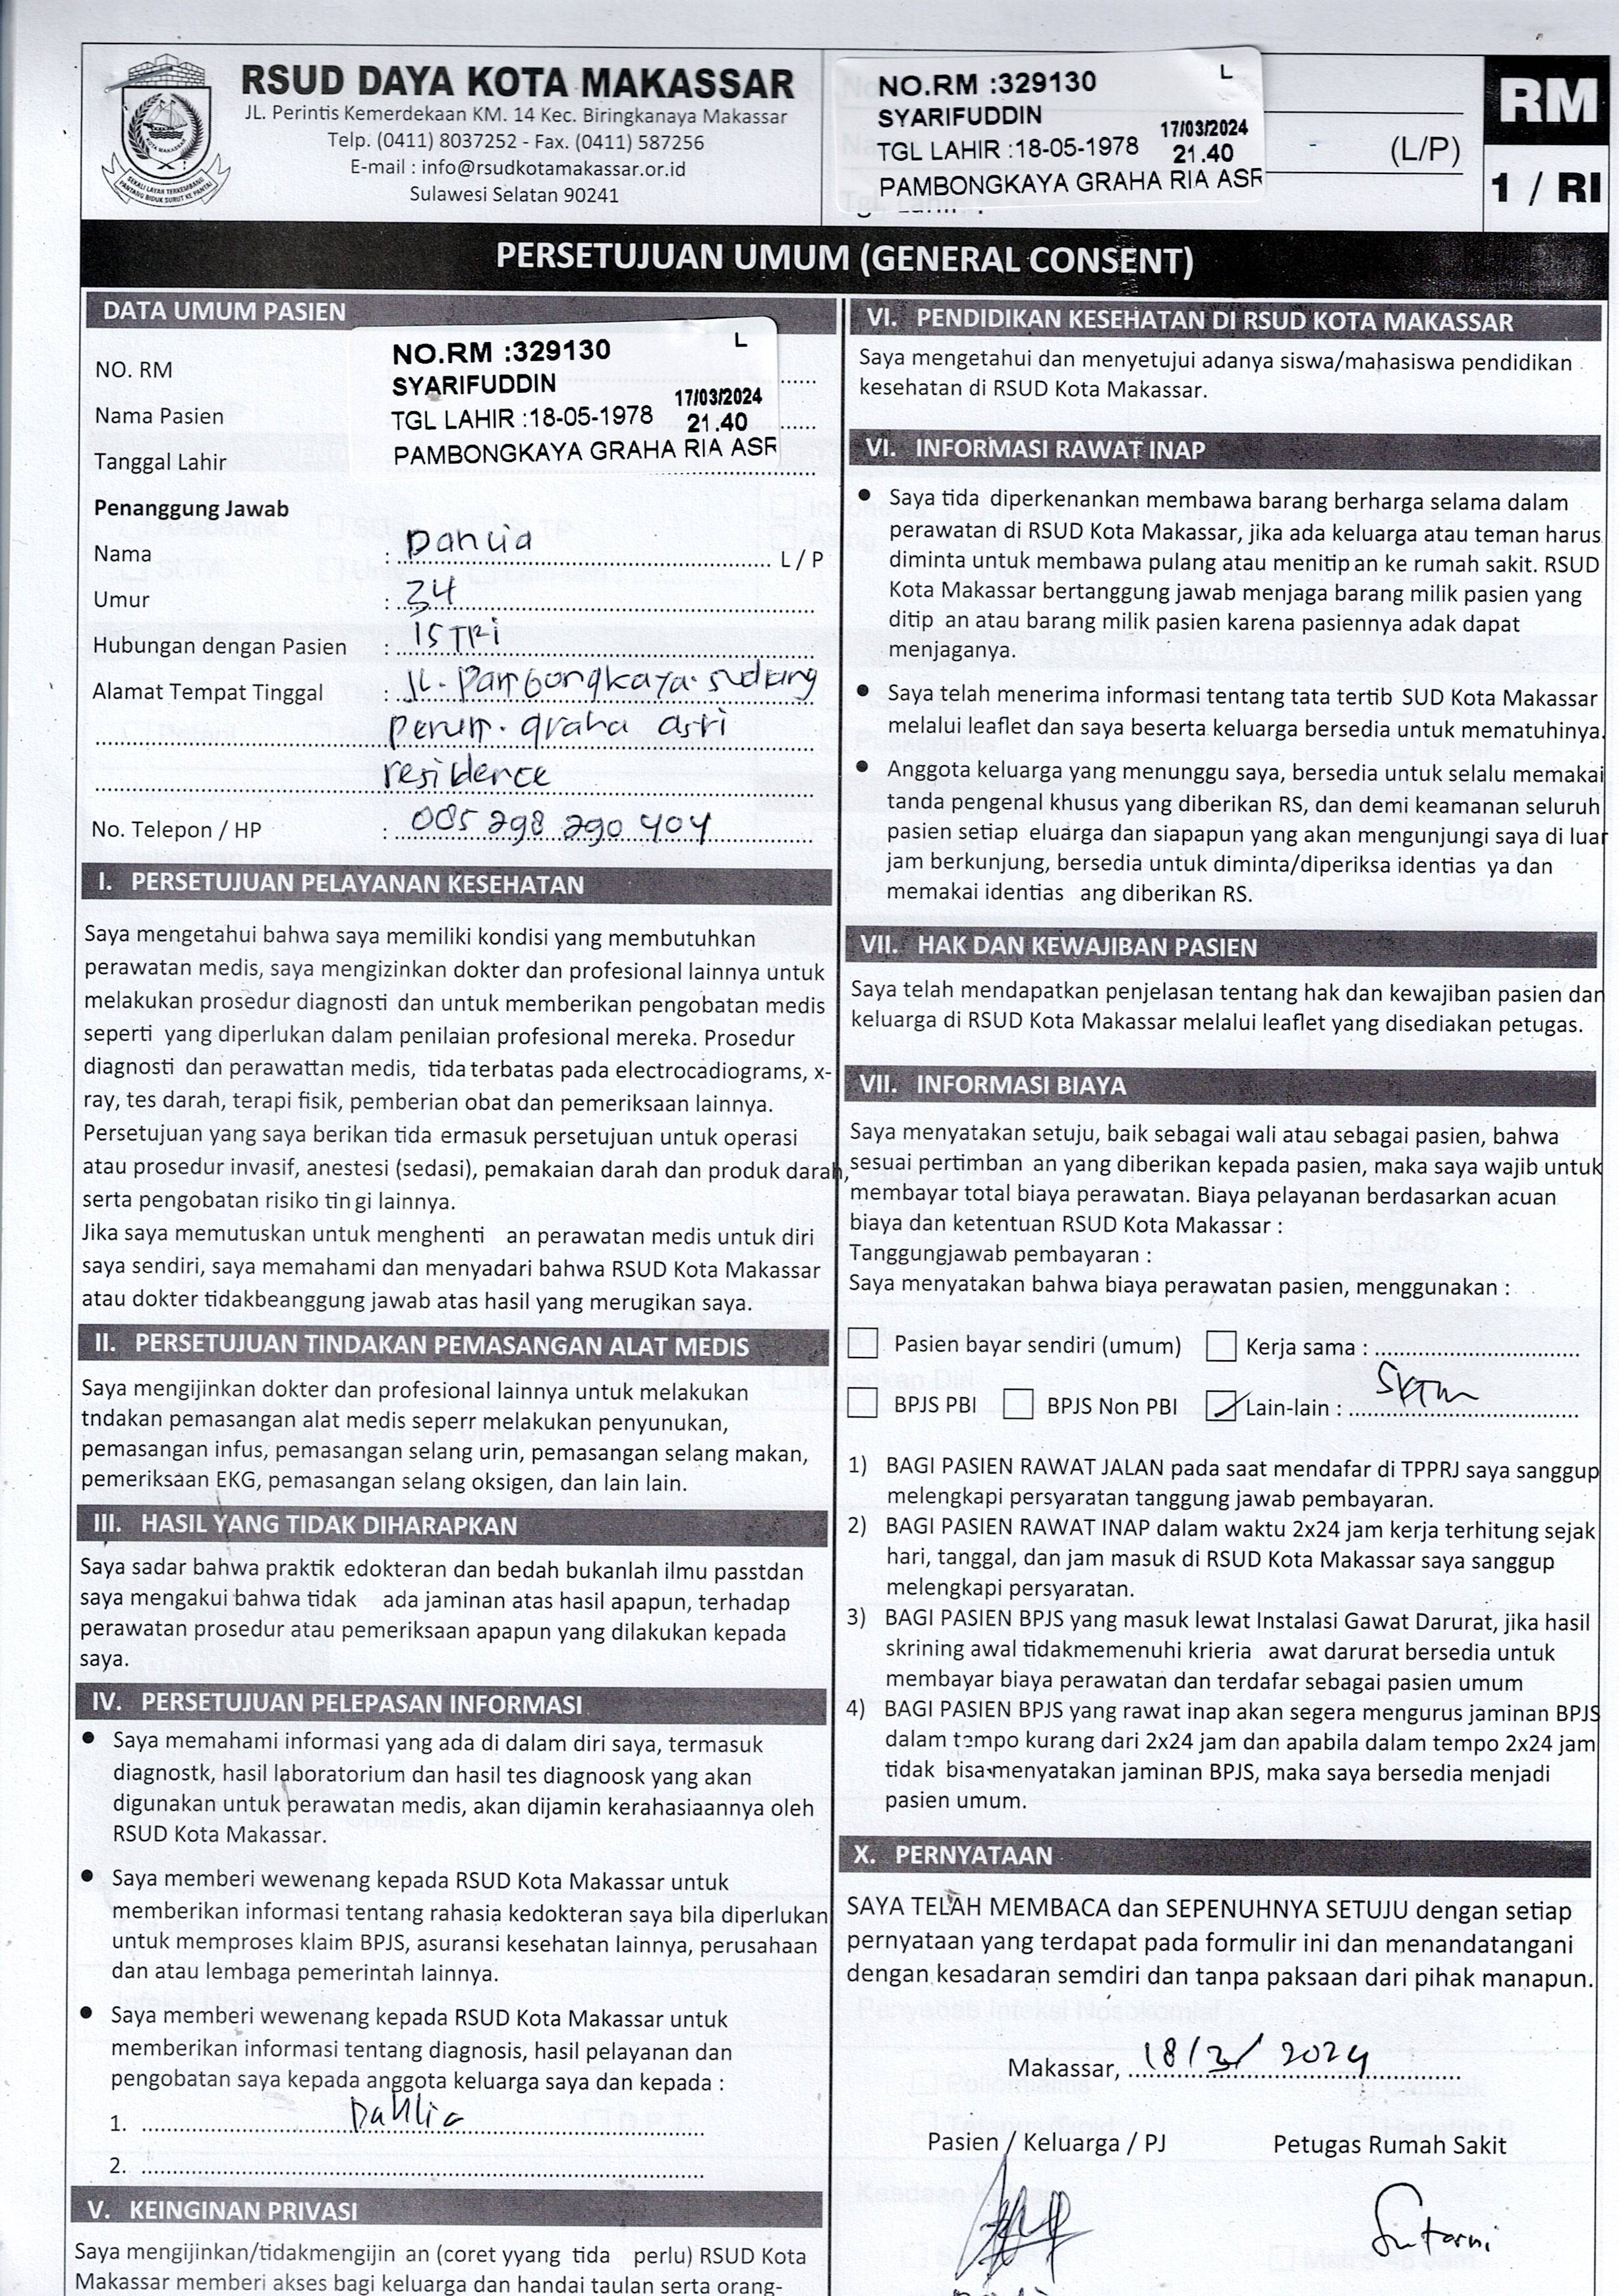 RSUD DAYA KOTA MAKASSAR
JL. Perintis Kemerdekaan KM. 14 Kec. Biringkanaya Makassar
Telp. (0411) 8037252 - Fax. (0411) 587256
E-mail : info@rsudkotamakassar.or.id
Sulawesi Selatan 90241
NO.RM :329130 L
SYARIFUDDIN
TGL LAHIR :18-05-1978 17/03/2024 21.40
PAMBONGKAYA GRAHA RIA ASR
(L/P)
RM
1 / RI
PERSETUJUAN UMUM (GENERAL CONSENT)
DATA UMUM PASIEN
NO. RM
Nama Pasien
Tanggal Lahir
NO.RM :329130 L
SYARIFUDDIN
TGL LAHIR :18-05-1978 17/03/2024 21.40
PAMBONGKAYA GRAHA RIA ASR
Penanggung Jawab
Nama : Dahlia L / P
Umur : 34
Hubungan dengan Pasien : ISTRI
Alamat Tempat Tinggal : JL. Pambongkaya. sudiang
perum. graha asri
residence
No. Telepon / HP : 085 298 290 404
I. PERSETUJUAN PELAYANAN KESEHATAN
Saya mengetahui bahwa saya memiliki kondisi yang membutuhkan
perawatan medis, saya mengizinkan dokter dan profesional lainnya untuk
melakukan prosedur diagnosti dan untuk memberikan pengobatan medis
seperti yang diperlukan dalam penilaian profesional mereka. Prosedur
diagnosti dan perawattan medis, tida terbatas pada electrocadiograms, x-
ray, tes darah, terapi fisik, pemberian obat dan pemeriksaan lainnya.
Persetujuan yang saya berikan tida ermasuk persetujuan untuk operasi
atau prosedur invasif, anestesi (sedasi), pemakaian darah dan produk darah,
serta pengobatan risiko tin gi lainnya.
Jika saya memutuskan untuk menghenti an perawatan medis untuk diri
saya sendiri, saya memahami dan menyadari bahwa RSUD Kota Makassar
atau dokter tidakbeanggung jawab atas hasil yang merugikan saya.
II. PERSETUJUAN TINDAKAN PEMASANGAN ALAT MEDIS
Saya mengijinkan dokter dan profesional lainnya untuk melakukan
tndakan pemasangan alat medis seperr melakukan penyunukan,
pemasangan infus, pemasangan selang urin, pemasangan selang makan,
pemeriksaan EKG, pemasangan selang oksigen, dan lain lain.
III. HASIL YANG TIDAK DIHARAPKAN
Saya sadar bahwa praktik edokteran dan bedah bukanlah ilmu passtdan
saya mengakui bahwa tidak ada jaminan atas hasil apapun, terhadap
perawatan prosedur atau pemeriksaan apapun yang dilakukan kepada
saya.
IV. PERSETUJUAN PELEPASAN INFORMASI
● Saya memahami informasi yang ada di dalam diri saya, termasuk
diagnostk, hasil laboratorium dan hasil tes diagnoosk yang akan
digunakan untuk perawatan medis, akan dijamin kerahasiaannya oleh
RSUD Kota Makassar.
● Saya memberi wewenang kepada RSUD Kota Makassar untuk
memberikan informasi tentang rahasia kedokteran saya bila diperlukan
untuk memproses klaim BPJS, asuransi kesehatan lainnya, perusahaan
dan atau lembaga pemerintah lainnya.
● Saya memberi wewenang kepada RSUD Kota Makassar untuk
memberikan informasi tentang diagnosis, hasil pelayanan dan
pengobatan saya kepada anggota keluarga saya dan kepada :
1. Dahlia
2.
V. KEINGINAN PRIVASI
Saya mengijinkan/tidakmengijin an (coret yyang tida perlu) RSUD Kota
Makassar memberi akses bagi keluarga dan handai taulan serta orang-
VI. PENDIDIKAN KESEHATAN DI RSUD KOTA MAKASSAR
Saya mengetahui dan menyetujui adanya siswa/mahasiswa pendidikan
kesehatan di RSUD Kota Makassar.
VI. INFORMASI RAWAT INAP
● Saya tida diperkenankan membawa barang berharga selama dalam
perawatan di RSUD Kota Makassar, jika ada keluarga atau teman harus
diminta untuk membawa pulang atau menitip an ke rumah sakit. RSUD
Kota Makassar bertanggung jawab menjaga barang milik pasien yang
ditip an atau barang milik pasien karena pasiennya adak dapat
menjaganya.
● Saya telah menerima informasi tentang tata tertib SUD Kota Makassar
melalui leaflet dan saya beserta keluarga bersedia untuk mematuhinya.
● Anggota keluarga yang menunggu saya, bersedia untuk selalu memakai
tanda pengenal khusus yang diberikan RS, dan demi keamanan seluruh
pasien setiap eluarga dan siapapun yang akan mengunjungi saya di luar
jam berkunjung, bersedia untuk diminta/diperiksa identias ya dan
memakai identias ang diberikan RS.
VII. HAK DAN KEWAJIBAN PASIEN
Saya telah mendapatkan penjelasan tentang hak dan kewajiban pasien dan
keluarga di RSUD Kota Makassar melalui leaflet yang disediakan petugas.
VII. INFORMASI BIAYA
Saya menyatakan setuju, baik sebagai wali atau sebagai pasien, bahwa
sesuai pertimban an yang diberikan kepada pasien, maka saya wajib untuk
membayar total biaya perawatan. Biaya pelayanan berdasarkan acuan
biaya dan ketentuan RSUD Kota Makassar :
Tanggungjawab pembayaran :
Saya menyatakan bahwa biaya perawatan pasien, menggunakan :
Pasien bayar sendiri (umum) Kerja sama :
BPJS PBI BPJS Non PBI Lain-lain : SKTM
1) BAGI PASIEN RAWAT JALAN pada saat mendafar di TPPRJ saya sanggup
melengkapi persyaratan tanggung jawab pembayaran.
2) BAGI PASIEN RAWAT INAP dalam waktu 2x24 jam kerja terhitung sejak
hari, tanggal, dan jam masuk di RSUD Kota Makassar saya sanggup
melengkapi persyaratan.
3) BAGI PASIEN BPJS yang masuk lewat Instalasi Gawat Darurat, jika hasil
skrining awal tidakmemenuhi krieria awat darurat bersedia untuk
membayar biaya perawatan dan terdafar sebagai pasien umum
4) BAGI PASIEN BPJS yang rawat inap akan segera mengurus jaminan BPJS
dalam tempo kurang dari 2x24 jam dan apabila dalam tempo 2x24 jam
tidak bisa menyatakan jaminan BPJS, maka saya bersedia menjadi
pasien umum.
X. PERNYATAAN
SAYA TELAH MEMBACA dan SEPENUHNYA SETUJU dengan setiap
pernyataan yang terdapat pada formulir ini dan menandatangani
dengan kesadaran semdiri dan tanpa paksaan dari pihak manapun.
Makassar, 18/3/ 2024
Pasien / Keluarga / PJ Petugas Rumah Sakit
Sutarni